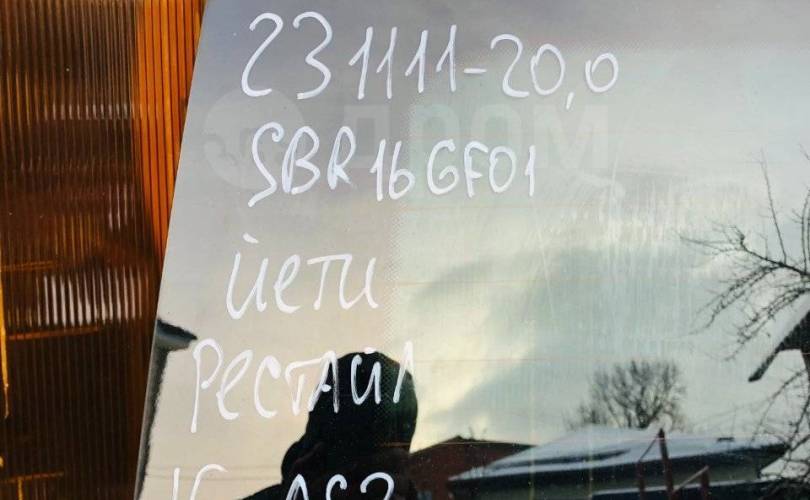 231111-20,0
ДРОМ
SBR16GF01
йети
РЕСТАЙЛ